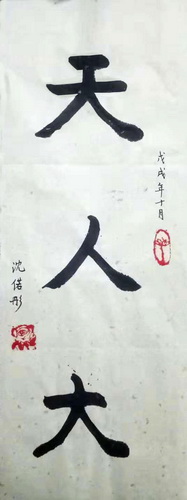 天人大
戊戌年十月
沈偌彤